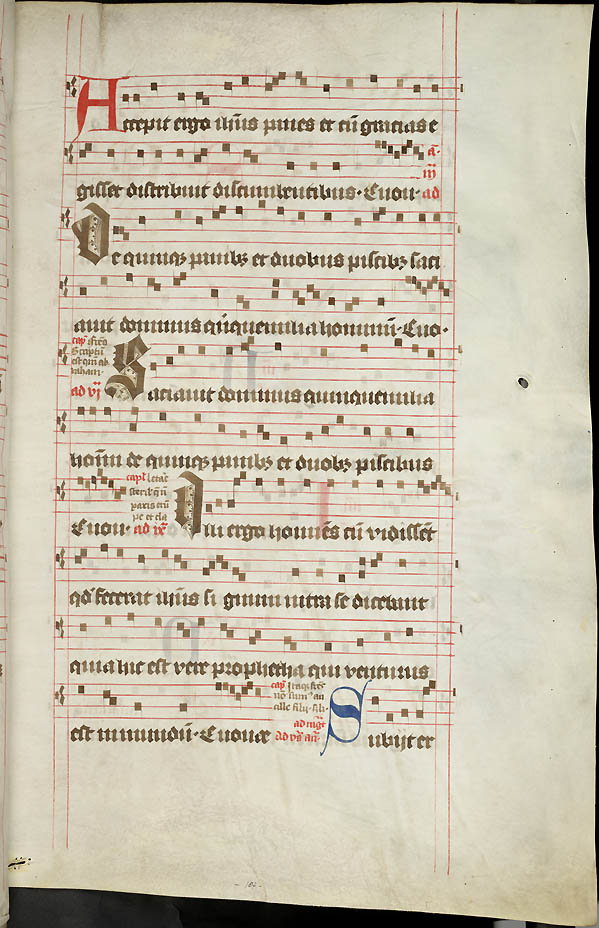 Accepit ergo ihūs panes et cū gracias e
gisset distribuit discumbentibus. Euou. ad
De quinqꝫ panibꝫ et duobus piscibꝫ saci
auit dominus quīquemilia hominū. Euo.
ad vj Saciauit dominus quinquemilia
hoīnū de quinqꝫ panibꝫ et duobꝫ piscibus
Euou. ad ix Illi ergo homines cū vidissēt
qđ fecerat ihūs signum intra se dicebant
quia hic est vere propheta qui venturus
est in mundū. Euouae Subijt er